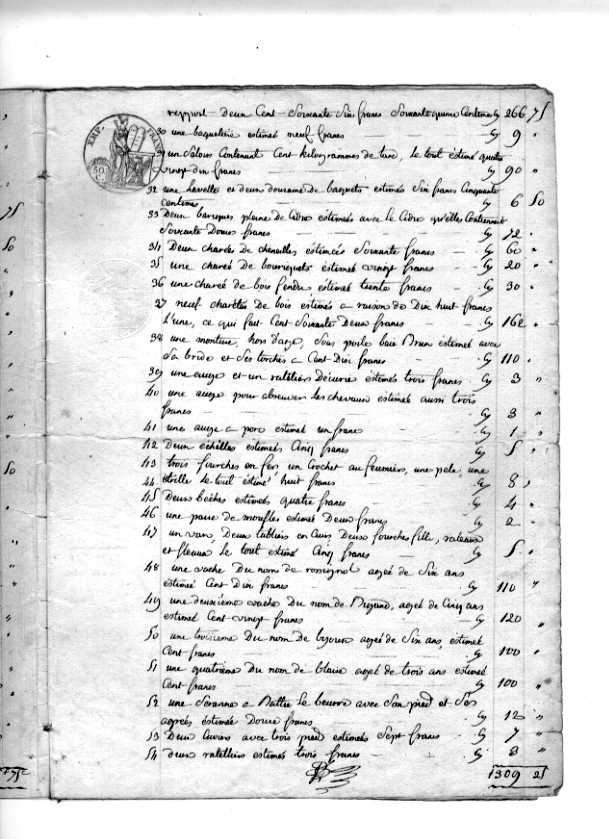 report Deux Cent Soixante Six francs Soixante quinze Centimes Cy 266 75
30 une baqueterie estimée neuf francs Cy 9 "
31 un Saloir Contenant Cent kilogrammes de lard, le tout estimé quatre
vingt dix francs Cy 90 "
32 une et deux douzaine de baquets estimés Six francs Cinquante
Centimes Cy 6 50
33 Deux bariques pleine de Cidre estimées avec le Cidre qu'elles Contiennent
Soixante Douze francs Cy 72 "
34 Deux charées de chenailles estimées Soixante francs Cy 60 "
35 une chareé de bourriquets estimet vingt francs Cy 20 "
36 une chareé de bois fendu estimée trente francs Cy 30 "
37 neuf charetés de bois estimés a raison de Dix huit francs
L'une, ce qui fait Cent Soixante Deux francs Cy 162 "
38 une monture, hors d'age, Sous poile bai Brun estimet avec
Sa bride et Ses torches a Cent Dix francs Cy 110 "
39 une auge et un ratélier estimés trois francs Cy 3 "
40 une auge pour abreuver les chevaux estimée aussi trois
francs Cy 3 "
41 une auge a porc estimet un franc Cy 1 "
42 Deux échelles estimées Cinq francs Cy 5 "
43 trois fourches en fer, un Crochet au feumiers, une pele, une
44 étrille le tout estimé huit francs Cy 8 "
45 Deux bêches estimés quatre francs Cy 4 "
46 une paire de moufles estimet Deux francs Cy 2 "
47 un van, Deux tabliers en Cuir, Deux fourches fille, rateaux
et fleaux le tout estimé Cinq francs Cy 5 "
48 une vache Du nom de rossignol agée de Six ans
estimée Cent Dix francs Cy 110 "
49 une deuxième vache Du nom de agée de Cinq ans
estimet Cent vingt francs Cy 120 "
50 une troisième Du nom de bijoux agée de Six ans, estimet
Cent francs Cy 100 "
51 une quatrième Du nom de blaire agée de trois ans estimet
Cent francs Cy 100 "
52 une Seranne a Battre le beurre avec Son pied et Ses
agreés estimée Douze francs Cy 12 "
53 Deux avec trois pied estimées Sept francs Cy 7 "
54 deux ratelliers estimés trois francs Cy 3 "
1309 25